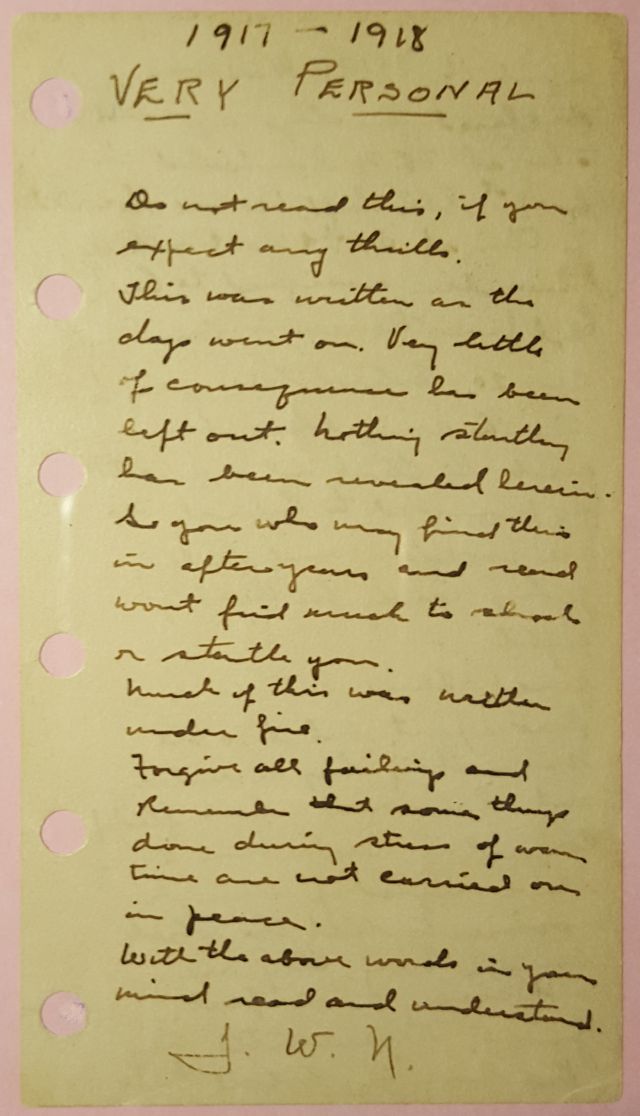 1917 - 1918
VERY PERSONAL
Do not read this, if you
expect any thrills.
This was written as the
days went on. Very little
of consequence has been
left out. Nothing startling
has been revealed herein.
So you who may find this
in after years and read
wont find much to shock
or startle you.
Much of this was written
under fire.
Forgive all failings and
Remember that some things
done during stress of war
time are not carried on
in peace.
With the above words in your
mind read and understand.
J. W. N.